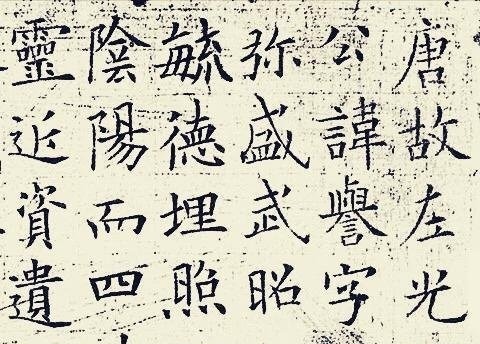 唐故左光
公諱譽字
弥盛武昭
毓德埋照
陰陽而四
靈近資遺